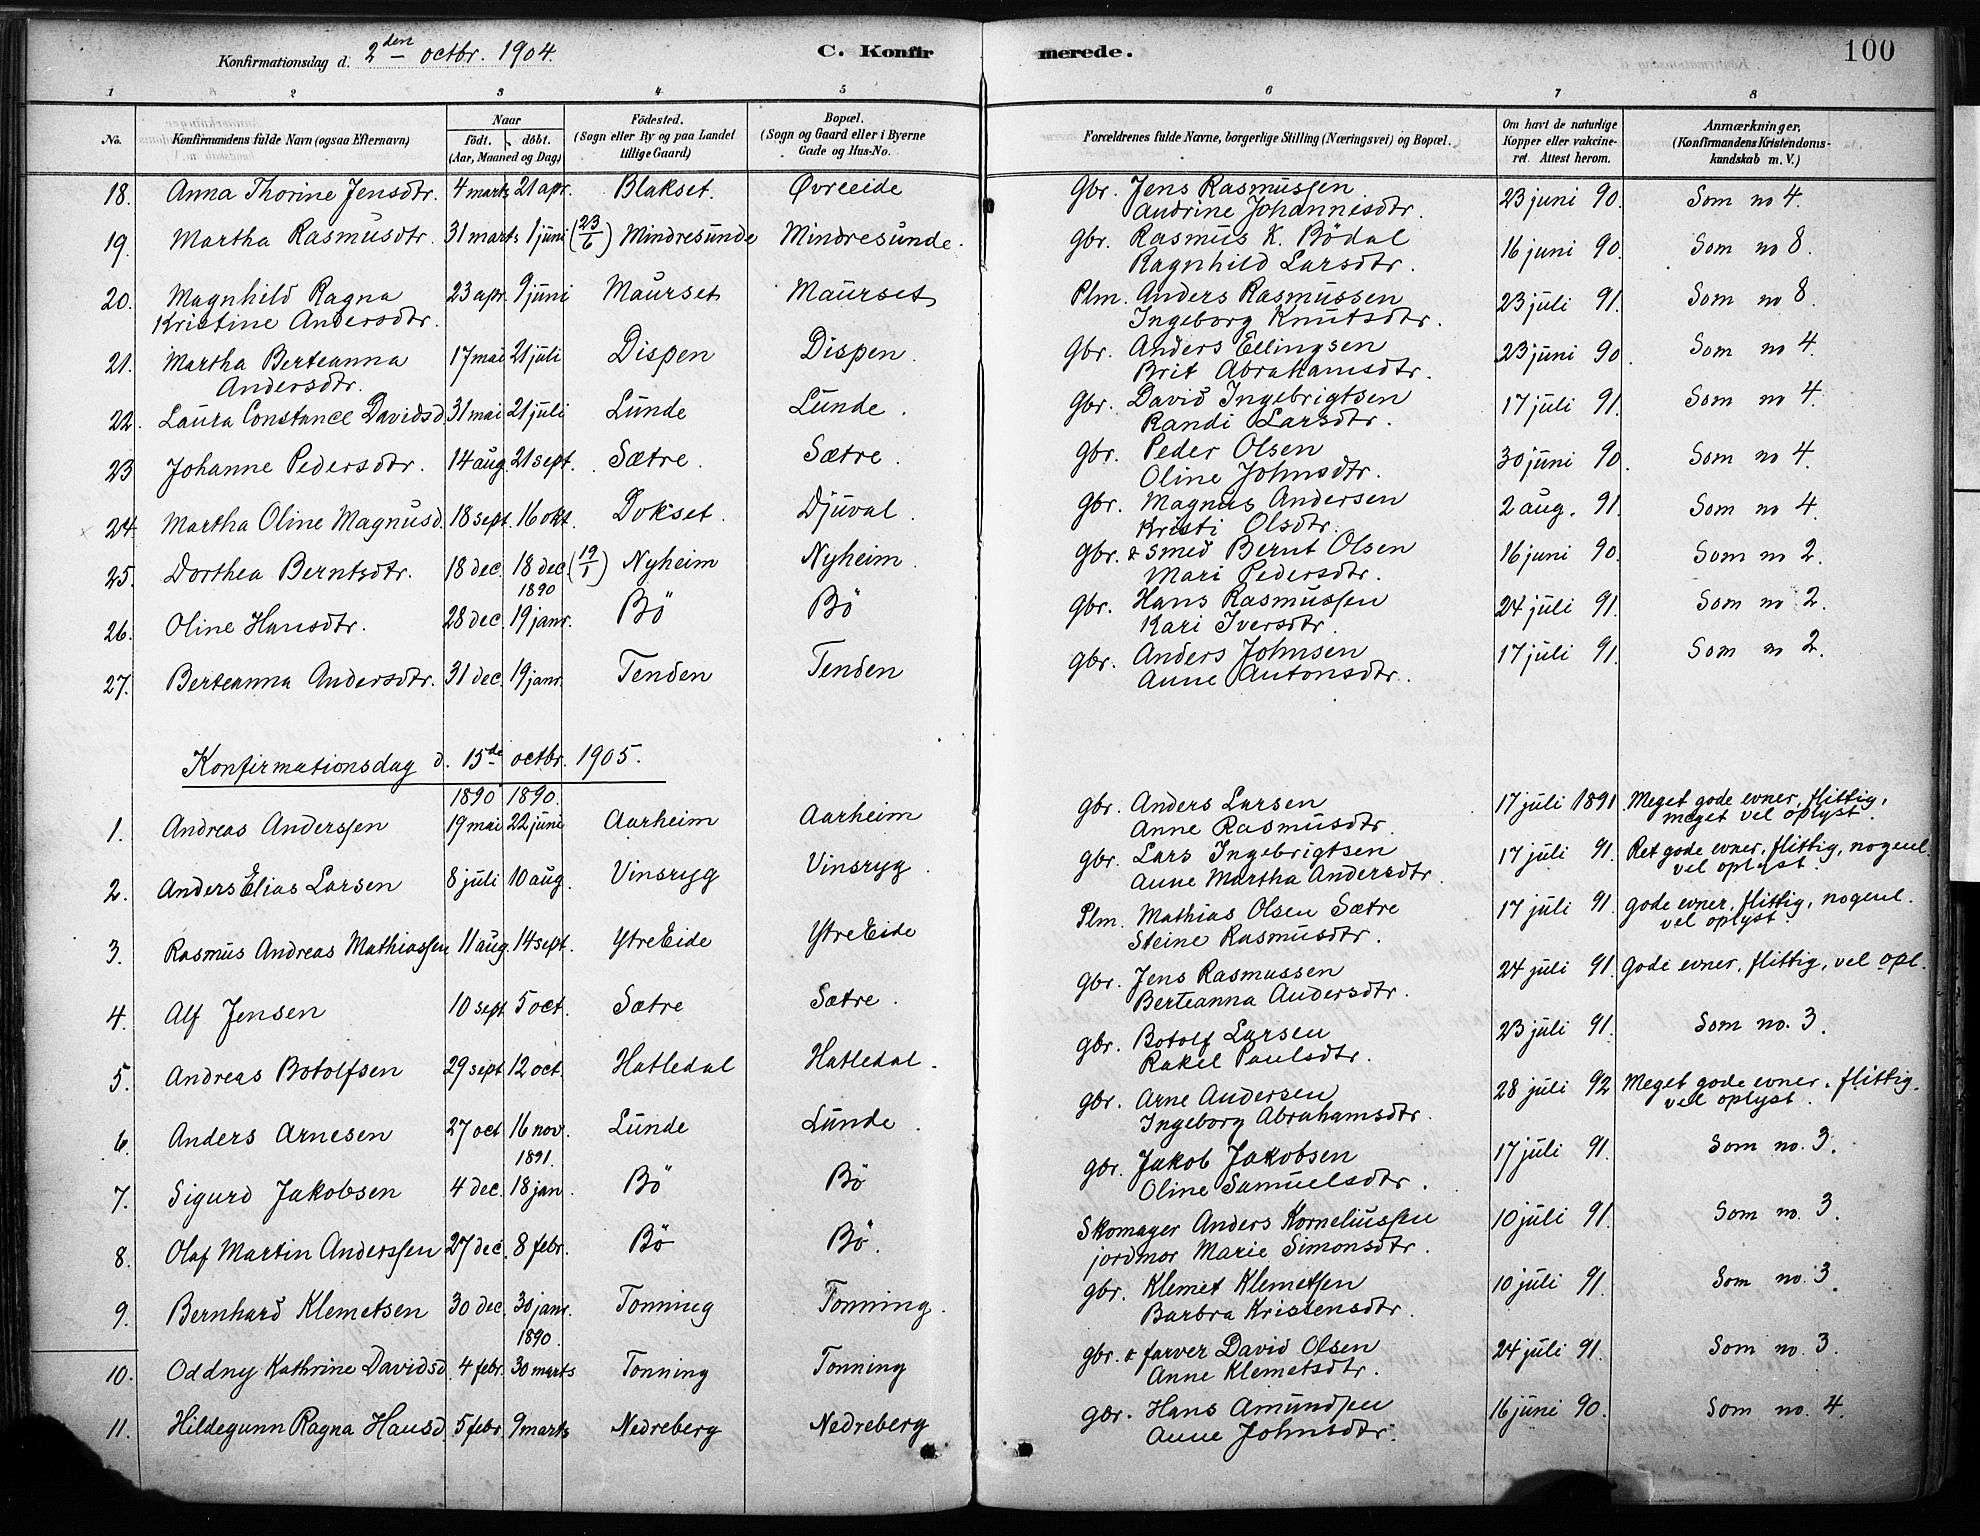 Konfirmationsdag d. 2den octbr. 1904.
C. Konfirmerede.
100
1 2 3 4 5 6 7 8
No. Konfirmandens fulde Navn (ogsaa Efternavn) Naar Födt. döbt. (Aar, Maaned og Dag) Födested. (Sogn eller By og paa Landet tillige Gaard) Bopæl. (Sogn og Gaard eller i Byerne Gade og Hus-No. Forældrenes fulde Navne, borgerlige Stilling (Næringsvei) og Bopæl. Om havt de naturlige Kopper eller vakcineret. Attest herom. Anmærkninger. (Konfirmandens Kristendomskundskab m. V.)
18. Anna Thorine Jensdtr. 4 marts 21 apr. Blakset. Øvreeide Gbr. Jens Rasmussen 23 juni 90. Som no 4.
Andrine Johannesdtr.
19. Martha Rasmusdtr. 31 marts 1 juni (23/6) Mindresunde Mindresunde. Gbr. Rasmus K. Bödal 16 juni 90. Som no 8.
Ragnhild Larsdtr.
20. Magnhild Ragna 23 apr. 9 juni Maurset Maurset Plm. Anders Rasmussen 23 juli 91. Som no 8.
Kristine Andersdtr. Ingeborg Knutsdtr.
21. Martha Berteanna 17 mai 21 juli Dispen Dispen. Gbr. Anders Ellingsen 23 juni 90. Som no 4.
Andersdtr. Brit Abrahamsdtr.
22. Laura Constance Davidsd. 31 mai 21 juli Lunde Lunde. Gbr. David Ingebrigtsen 17 juli 91. Som no 4.
Randi Larsdtr.
23 Johanne Pedersdtr. 14 aug. 21 sept. Sætre. Sætre. Gbr. Peder Olsen 30 juni 90. Som no 4.
Oline Johnsdtr.
24. Martha Oline Magnusd. 18 sept. 16 okt. Dokset. Djuval. Gbr. Magnus Andersen 2 aug. 91. Som no 4.
Kristi Olsdtr.
25. Dorthea Berntsdtr. 18 dec. 18 dec. (19/1) Nyheim Nyheim. Gbr. & smed Bernt Olsen 16 juni 90. Som no 2.
Mari Pedersdtr.
1890
26. Oline Hansdtr. 28 dec. 19 janr. Bö Bö Gbr. Hans Rasmussen 24 juli 91. Som no 2.
Kari Iversdtr.
27. Berteanna Andersdtr. 31 dec. 19 janr. Tenden Tenden Gbr. Anders Johnsen 17 juli 91. Som no 2.
Anne Antonsdtr.
Konfirmationsdag d. 15de octbr. 1905.
1890 1890.
1. Andreas Anderssen 19 mai 22 juni Aarheim Aarheim gbr. Anders Larsen 17 juli 1891 Meget gode evner, flittig,
Anne Rasmusdtr. meget vel oplyst.
2. Anders Elias Larsen 8 juli 10 aug. Vinsryg Vinsryg. gbr. Lars Ingebrigtsen 17 juli 91. Ret gode evner, flittig, nogenl.
Anne Martha Andersdtr. vel oplyst.
3. Rasmus Andreas Mathiassen 11 aug. 14 sept. Ytre Eide Ytre Eide Plm. Mathias Olsen Sætre 17 juli 91. gode evner, flittig, nogenl.
Steine Rasmusdtr. vel oplyst.
4. Alf Jensen 10 sept. 5 oct. Sætre Sætre. gbr. Jens Rasmussen 24 juli 91. gode evner, flittig, vel opl.
Berteanna Andersdtr.
5. Andreas Botolfsen 29 sept. 12 oct. Hatledal Hatledal. gbr. Botolf Larsen 23 juli 91. Som no. 3.
Rakel Paulsdtr.
6. Anders Arnesen 27 oct 16 nov. Lunde Lunde. gbr. Arne Andersen 28 juli 92 Meget gode evner, flittig.
Ingeborg Abrahamsdtr. vel oplyst.
1891.
7. Sigurd Jakobsen 4 dec. 18 jan. Bö Bö gbr. Jakob Jakobsen 17 juli 91. Som no. 3.
Oline Samuelsdtr.
8. Olaf Martin Anderssen 27 dec. 8 febr. Bö Bö. Skomager Anders Korneliussen 10 juli 91. Som no. 3.
jordmor Marie Simonsdtr.
9. Bernhard Klemetsen 30 dec. 30 janr. Tonning Tonning. gbr. Klemet Klemetsen 10 juli 91. Som no. 3.
Barbra Kristensdtr.
1890.
10. Oddny Kathrine Davidsd. 4 febr. 30 marts Tonning Tonning gbr. & farver David Olsen 24 juli 91. Som no. 3.
Anne Klemetsdtr.
11. Hildegunn Ragna Hansd. 5 febr. 9 marts Nedreberg Nedreberg gbr. Hans Amundsen 16 juni 90. Som no. 4.
Anne Johnsdtr.